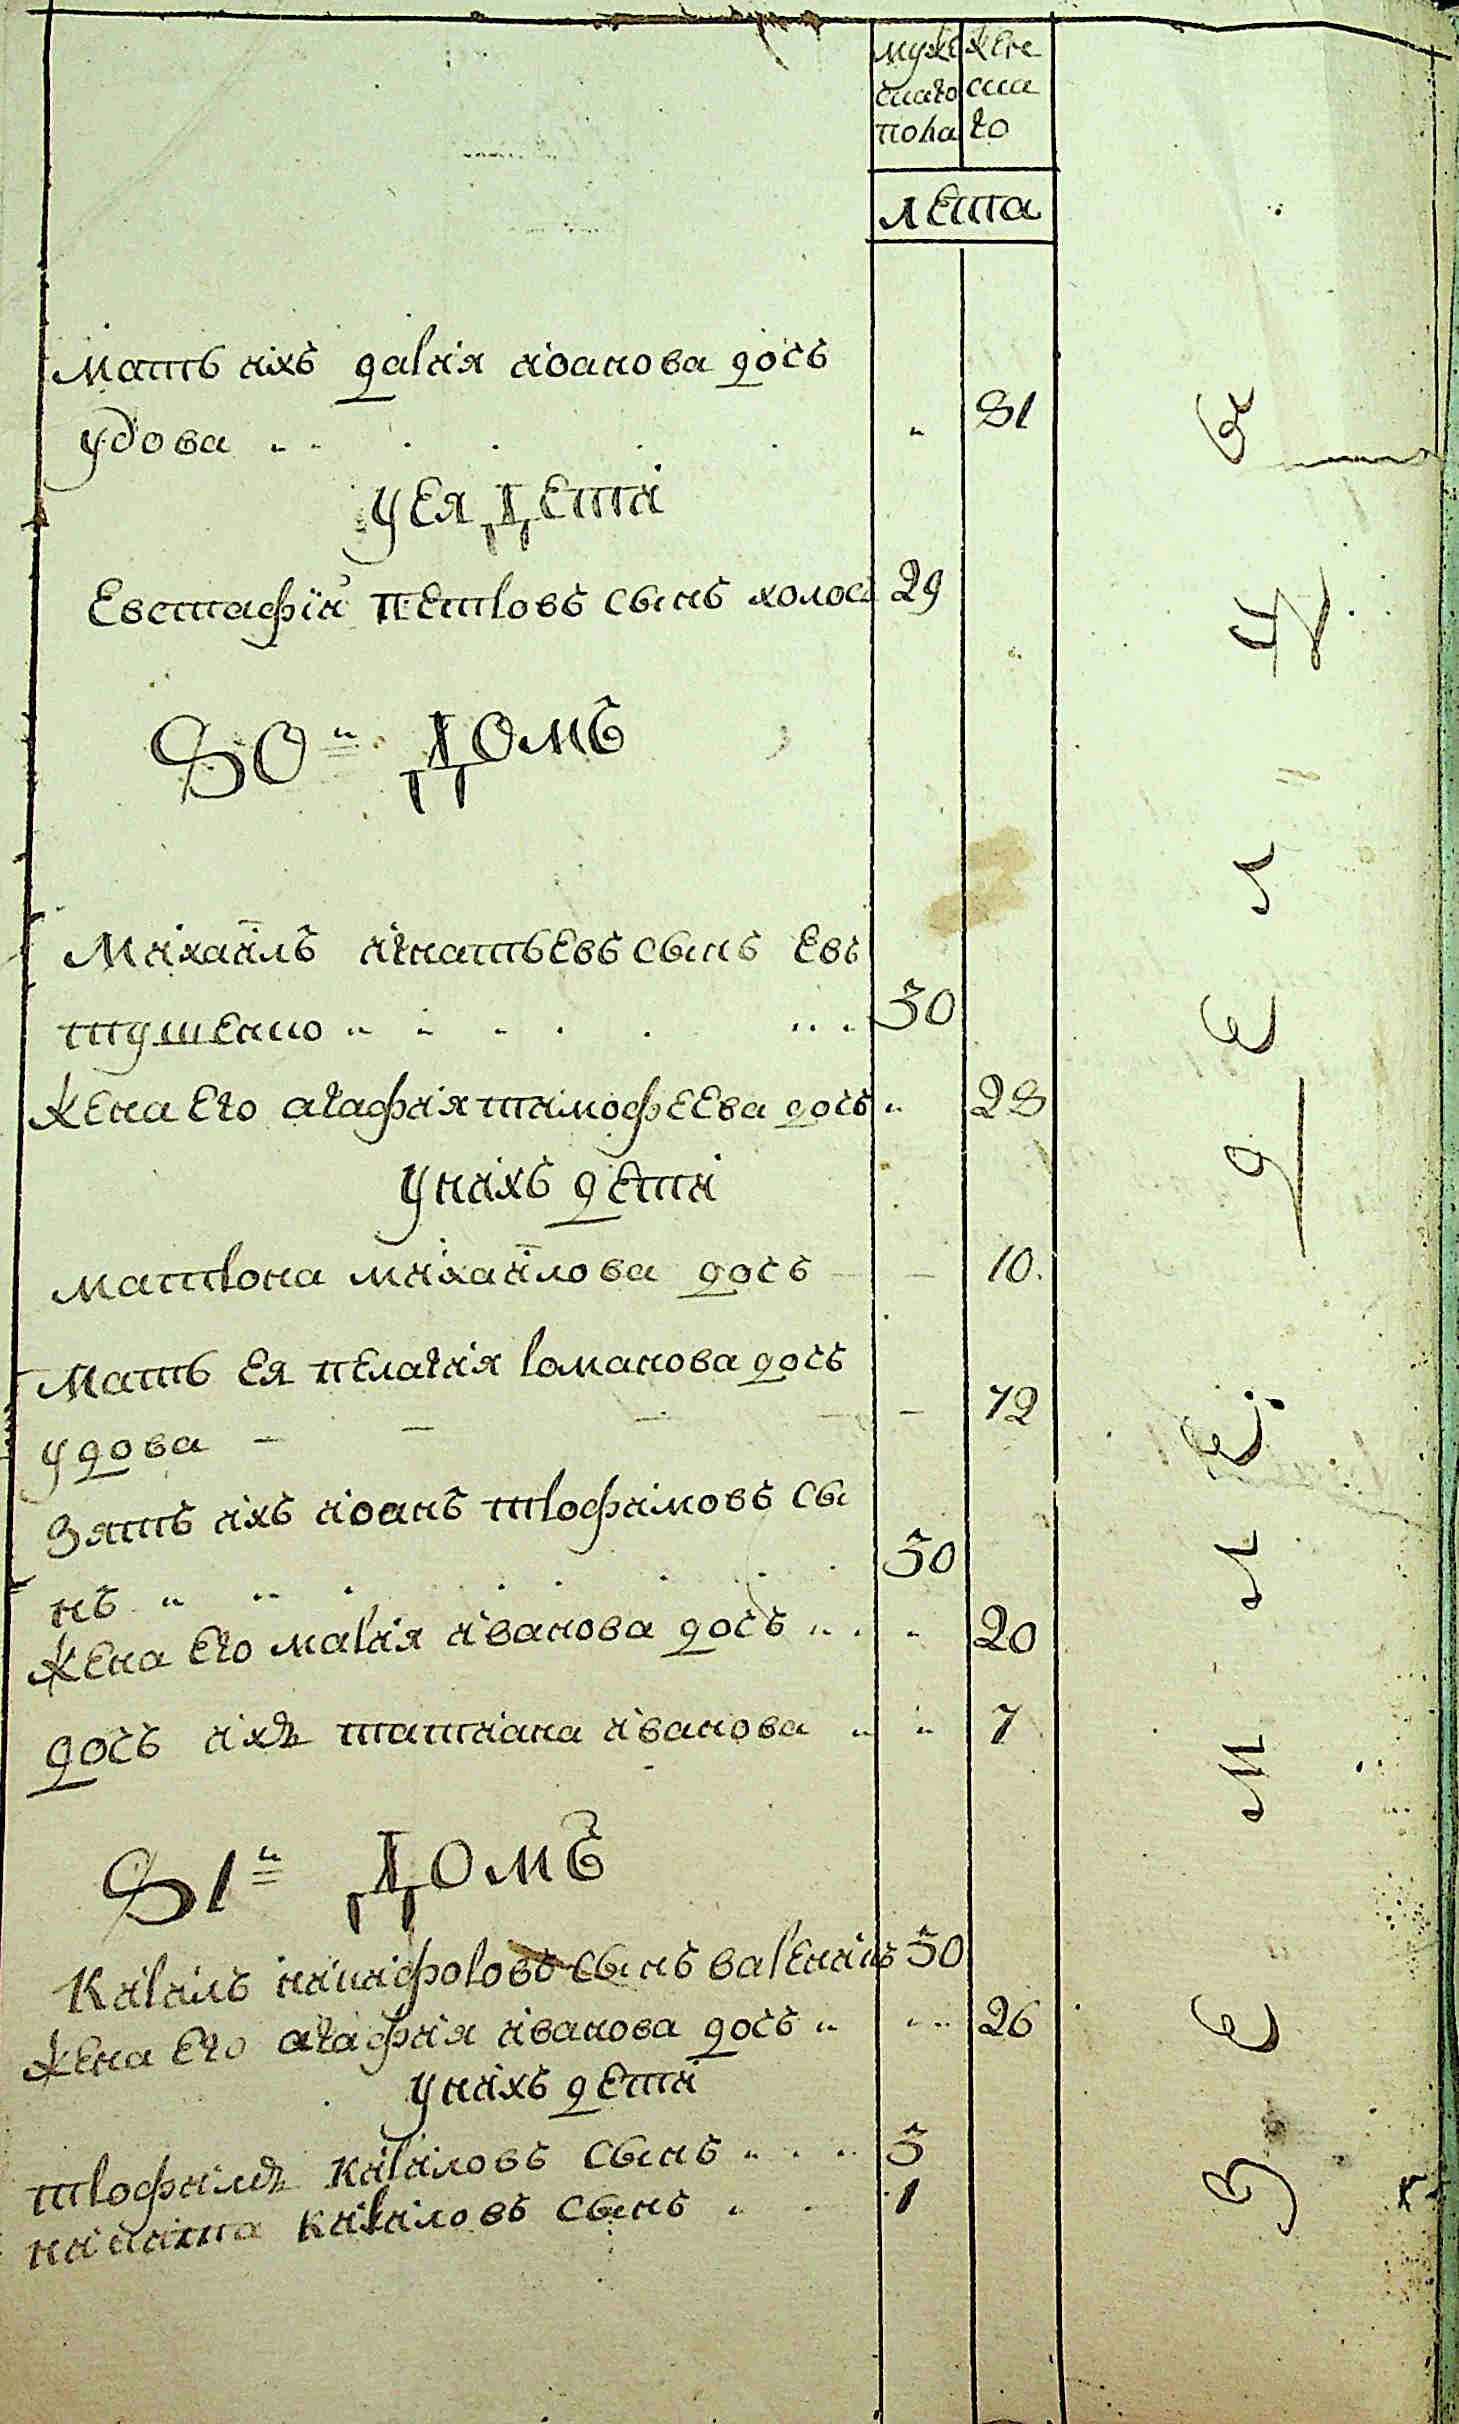 мужескаго пола
женскаго
лета
Мать ихъ дарiя иванова дочь
удова 81
у ея дети
Евстафiй петровъ сынъ холостъ 29
80й домъ
Михайлъ игнатьевъ сынъ Евъ
тушенко 30
жена его агафiя тимофеева дочь 28
у нихъ дети
матрона михайлова дочь 10
Мать ея пелагiя романова дочь
удова 72
Зять ихъ иванъ трофимовъ сы
нъ 30
жена его марiя иванова дочь 20
дочь ихъ татiана иванова 7
81й домъ
Кирилъ никифоровъ сынъ
30
жена его агафiя иванова дочь 26
у нихъ дети
трофимъ кириловъ сынъ 3
никита кириловъ сынъ 1
Земледелецъ